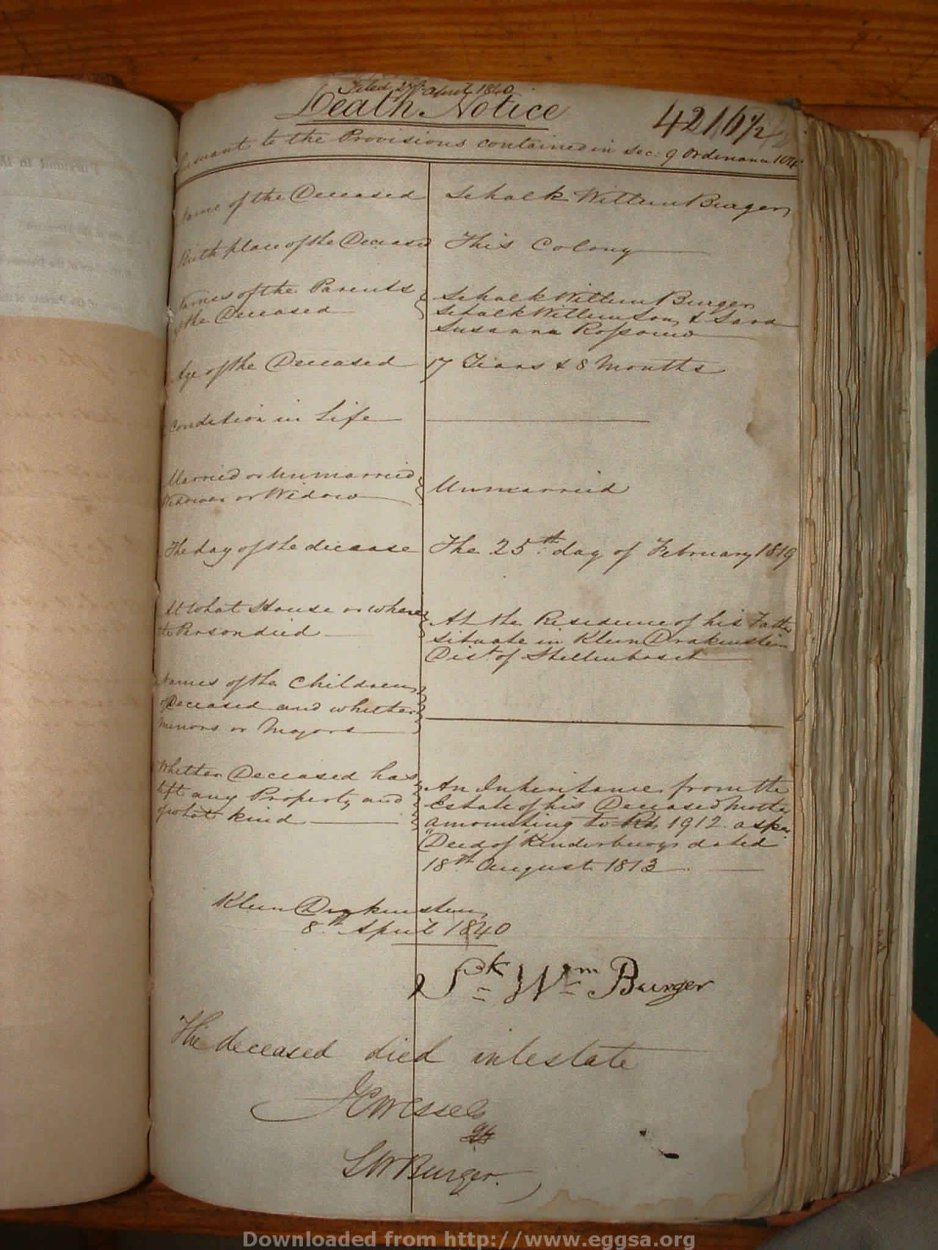 Filed 27th April 1840
Death Notice
4216 1/2
Pursuant to the Provisions contained in Sec. 9 Ordinance 104
Name of the Deceased Schalk Willem Burger
Birth place of the Deceased This Colony
Names of the Parents
of the Deceased
Schalk Willem Burger
Schalk Willem Son, & Sara
Susanna Rossouw
Age of the Deceased 17 Years & 8 Months
Condition in Life
Married or Unmarried
Widower or Widow
Unmarried
The day of the decease The 25th day of February 1819
At what House or where
the Person died
At the Residence of his Father
Situate in Klein Drakenstein
Dist. of Stellenbosch
Names of the Children
of Deceased and whether
Minors or Majors
Whether Deceased has
left any Property and
of what kind
An Inheritance from the
Estate of his Deceased Mother
amounting to 1912 as per
"Deed of Kinderbewys dated
18th August 1813
Klein Drakenstein
8th April 1840
Sk Wm Burger
The deceased died intestate
JC Wessels
SW Burger.
Downloaded from http://www.eggsa.org